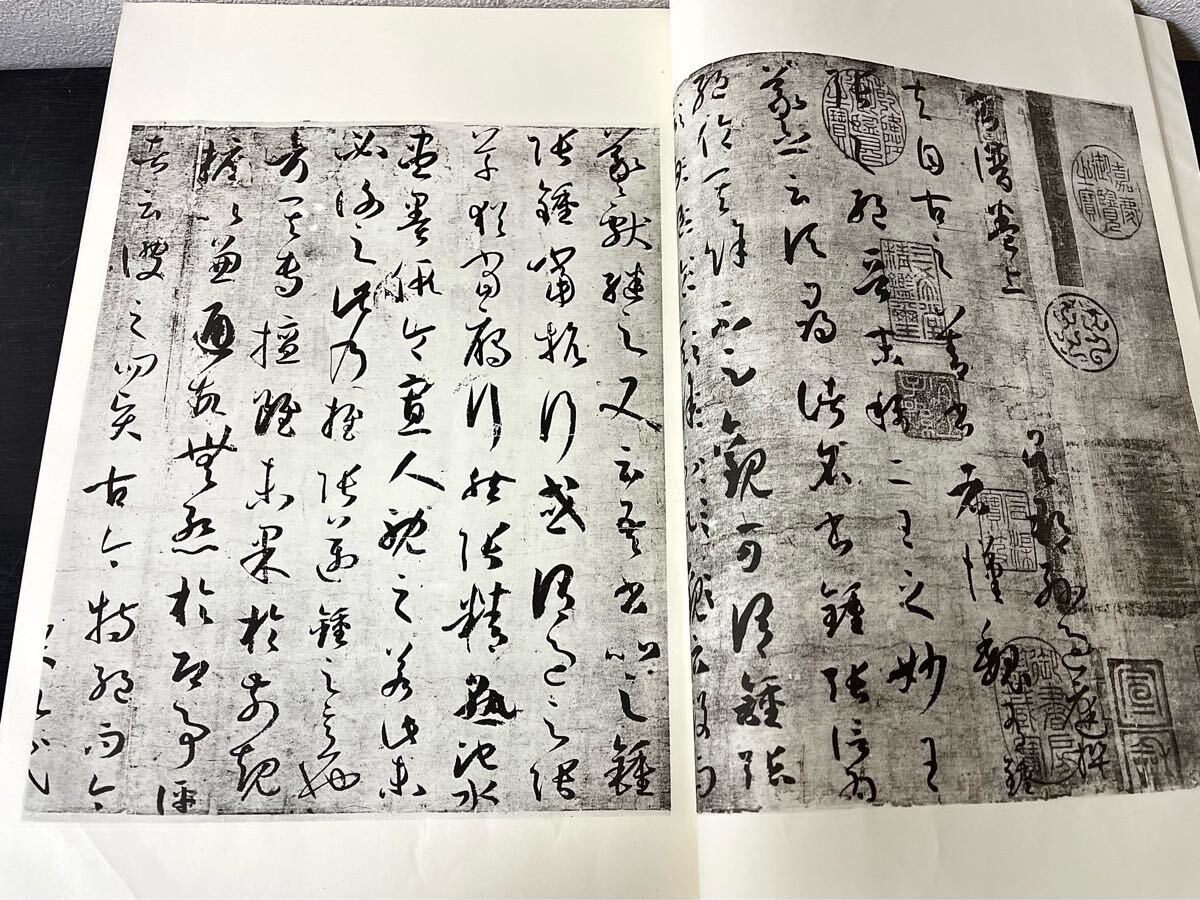 嘉慶御覽之寶
宣龢
書譜卷上
吳郡孫過庭撰
夫自古之善書者漢魏有鍾
張之絕晉末稱二王之妙王
羲之云頃尋諸名書鍾張信為
絕倫其餘不足觀可謂鍾張
云沒而
乾隆御覽之寶
三希堂精鑑璽
宜子孫
羲獻繼之又云吾書比之鍾
張鍾當抗行或謂過之張
草猶當雁行然張精熟池水
盡墨假令寡人耽之若此未
必謝之此乃推張邁鍾之意也
考其專擅雖未果於前規
摭以兼通故無慚於即事評
者云彼之四賢古今特絕而今